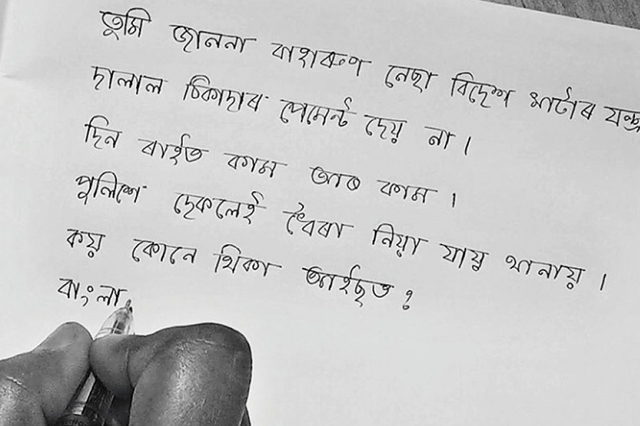 তুমি জাননা বাহাৰুণ নেছা বিদেশ মাটাৰ যন্ত্ৰ
দালাল ঠিকাদাৰ পেমেন্ট দেয় না।
দিন ৰাইত কাম আৰ কাম।
পুলিশে দেকলেই ধৈৰা নিয়া যায় থানায়।
কয় কোনে থিকা আইছত?
বাংলা